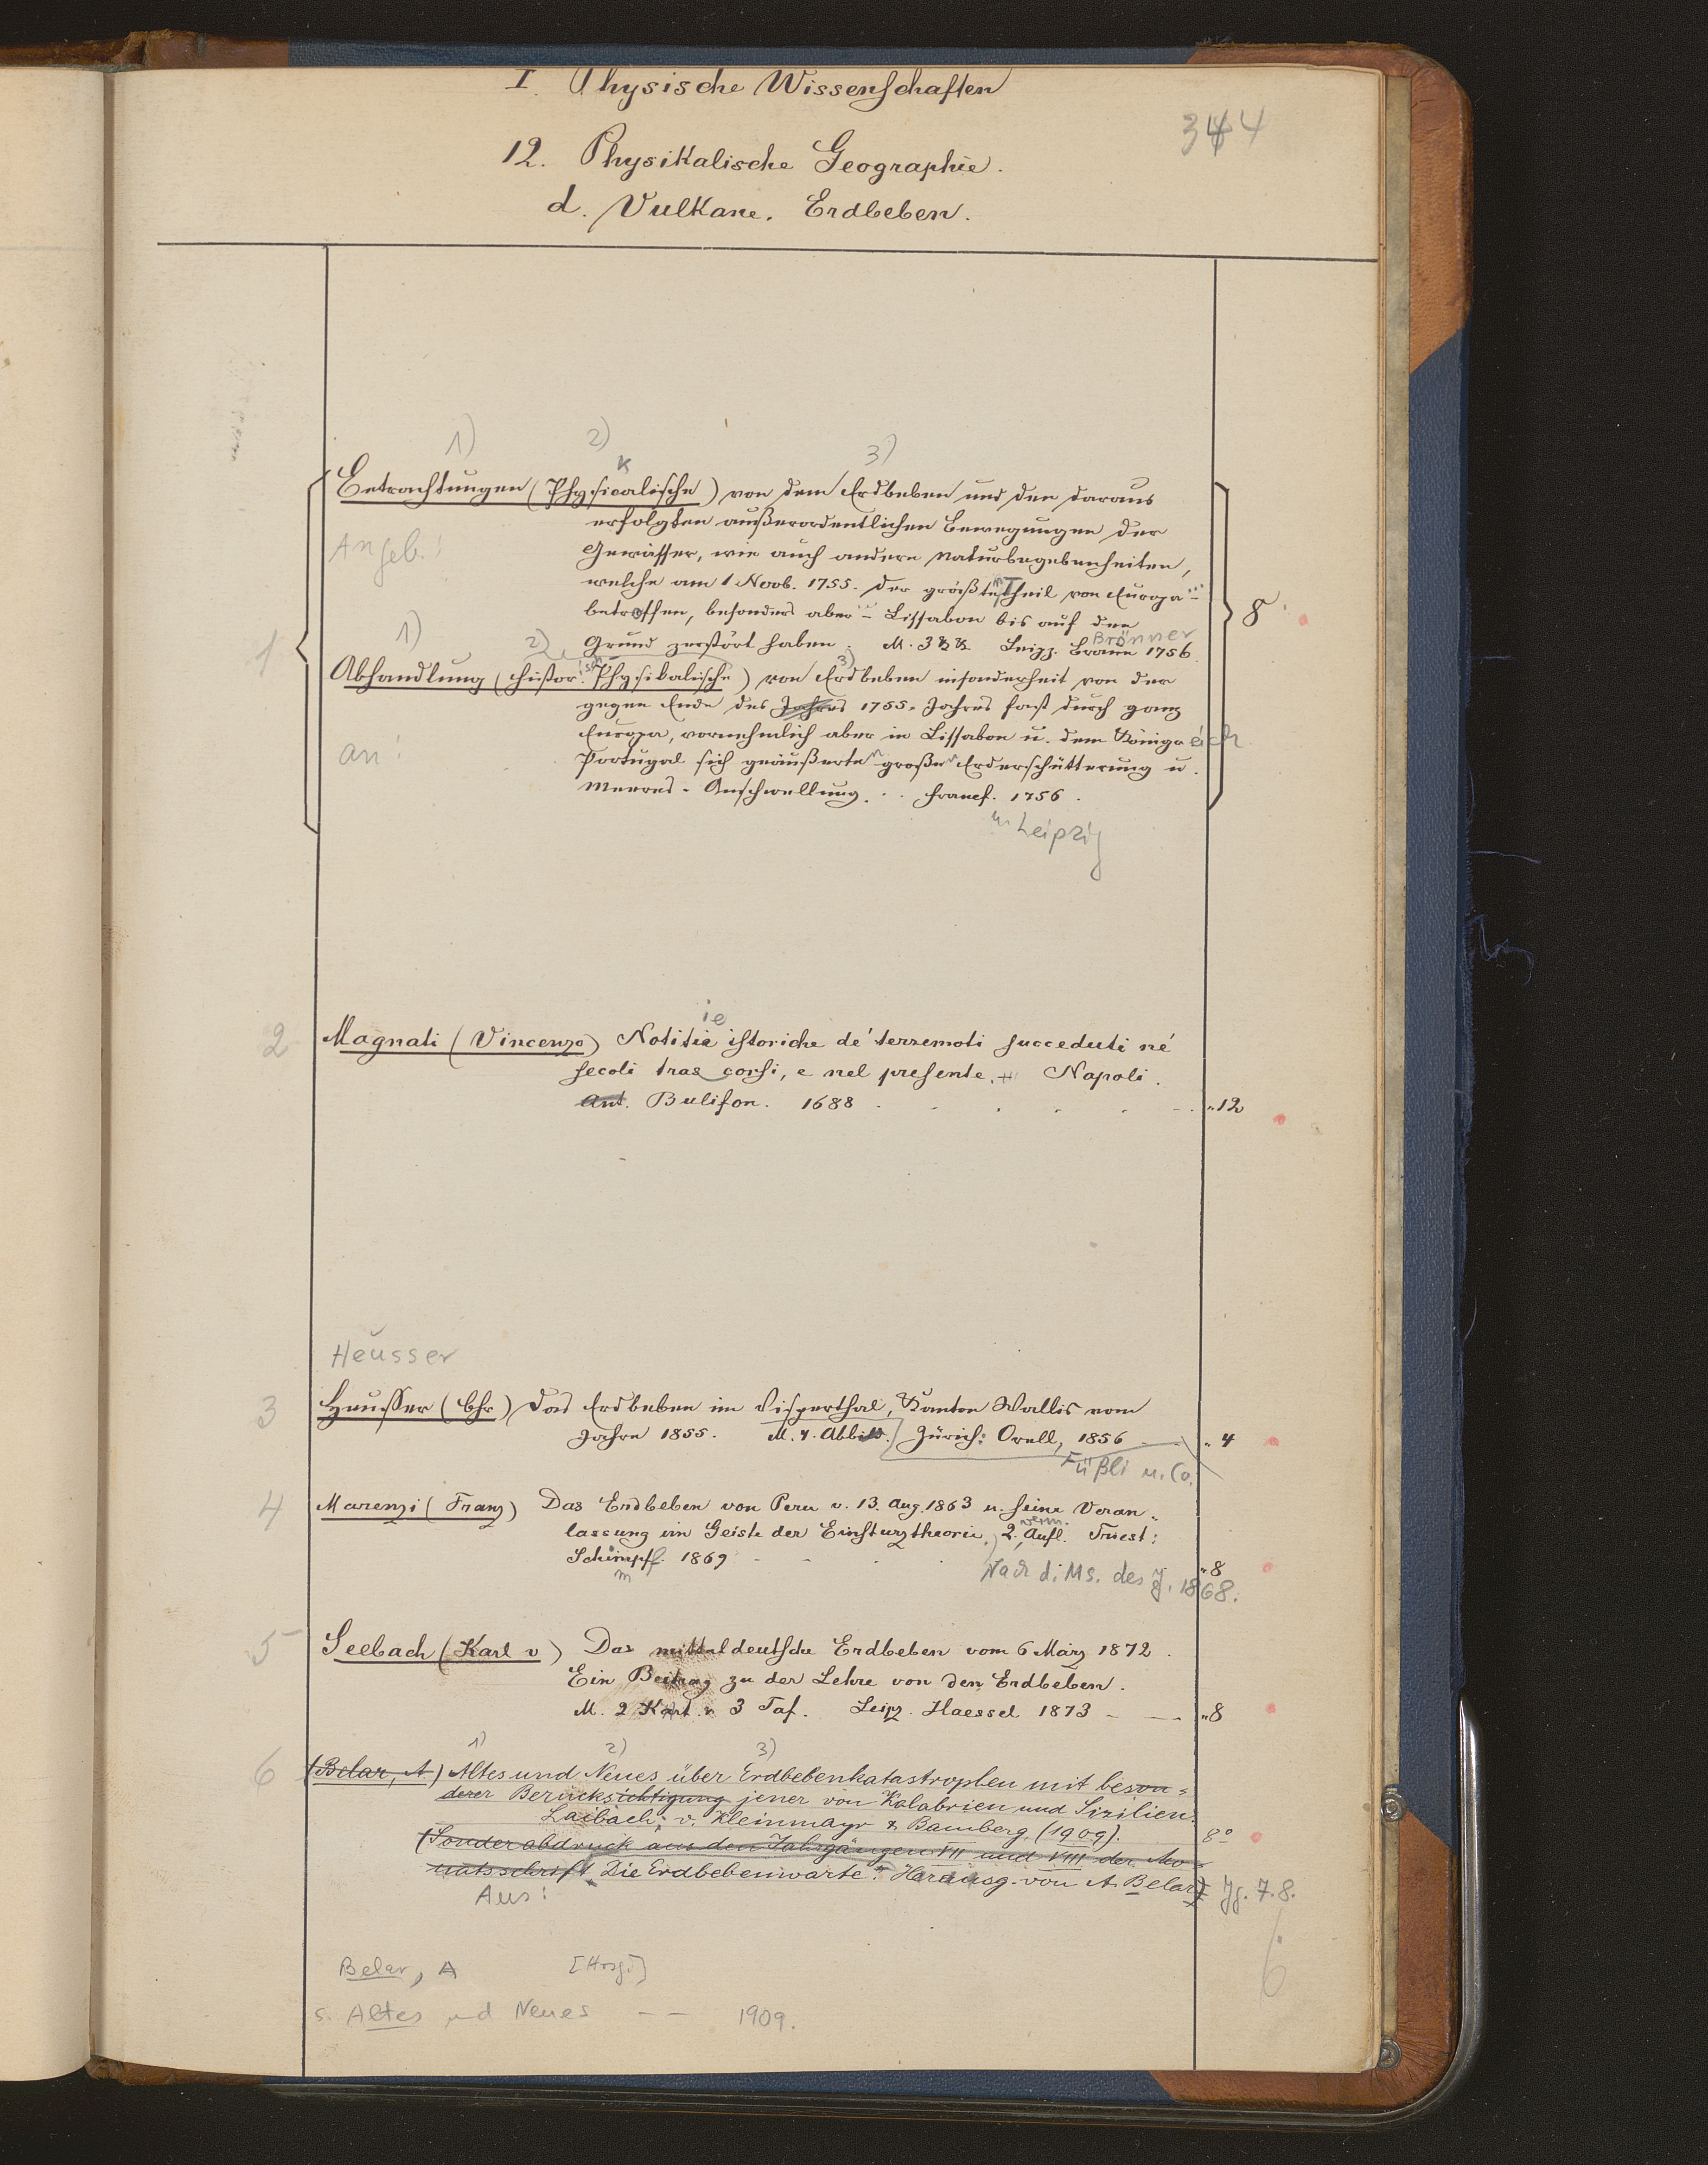 I. Physische Wissenschaften
344
12. Physikalische Geographie.
d. Vulkane. Erdbeben.
1) 2) 3)
k
Betrachtungen (Physicalische) von dem Erdbeben und den daraus
erfolgten außerordentlichen Bewegungen der
Angeb.!
Gewässer, wie auch andere Naturbegebenheiten,
welche am 1 Novb. 1755. der größten Theil von Europa
betroffen, besonders aber Lissabon bis auf den
8
Brönner
1
Grund zerstört haben. M. 3 Leipz. Braun 1756.
1) 2) 3)
Abhandlung (histor. Physikalische) von Erdbeben insonderheit von der
gegen Ende des Jahres 1755. Jahres fast durch ganz
Europa, vornehmlich aber in Lissabon u. dem Königreich
an!
Portugal sich geäußerte große Erderschütterung u.
Meeres-Anschwellung. Francf. 1756.
u. Leipzig
ie
2 Magnati (Vincenzo) Notitie istoriche de' terremoti succeduti ne'
secoli trascorsi, e nel presente. Napoli.
Ant. Bulifon. 1688 " 12
Heusser
3 Heusser (Chr) Das Erdbeben im Visperthal, Kanton Wallis vom
Jahre 1855. M. 4. Abbild. Zürich: Orell, 1856 " 4
Füßli u. Co.
4 Marenzi (Franz) Das Erdbeben von Peru v. 13. Aug. 1863 u. seine Veran-
lassung im Geiste der Einsturztheorie. 2. verm. Aufl. Triest:
Schimpff. 1869 " 8
m
Nach d. Ms. des J. 1868.
5 Seebach (Karl v) Das mitteldeutsche Erdbeben vom 6 März 1872.
Ein Beitrag zu der Lehre von den Erdbeben.
M. 2 Kart. u 3 Taf. Leipz. Haessel 1873 " 8
1) 2) 3)
6 (Belar, A.) Altes und Neues über Erdbebenkatastrophen mit beson-
derer Berücksichtigung jener von Kalabrien und Sizilien.
Laibach: v. Kleinmayr & Bamberg, (1909). 8°
(Sonderabdruck aus den Jahrgängen VII und VIII der Mo-
natsschrift „Die Erdbebenwarte." Herausg. von A. Belar) Jg. 7. 8.
Aus:
6
Belar, A [Hrsg.]
s. Altes und Neues — — 1909.